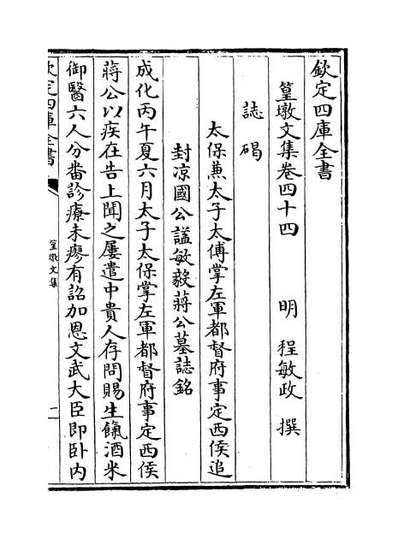 欽定四庫全書
篁墩文集卷四十四
明 程敏政 撰
誌碣
太保兼太子太傅掌左軍都督府事定西侯追
封涼國公諡敏毅蔣公墓誌銘
成化丙午夏六月太子太保掌左軍都督府事定西侯
蔣公以疾在告上聞之屢遣中貴人存問賜生餼酒米
御醫六人分番診療未瘳有詔加恩文武大臣即卧内
欽定四庫全書
篁墩文集